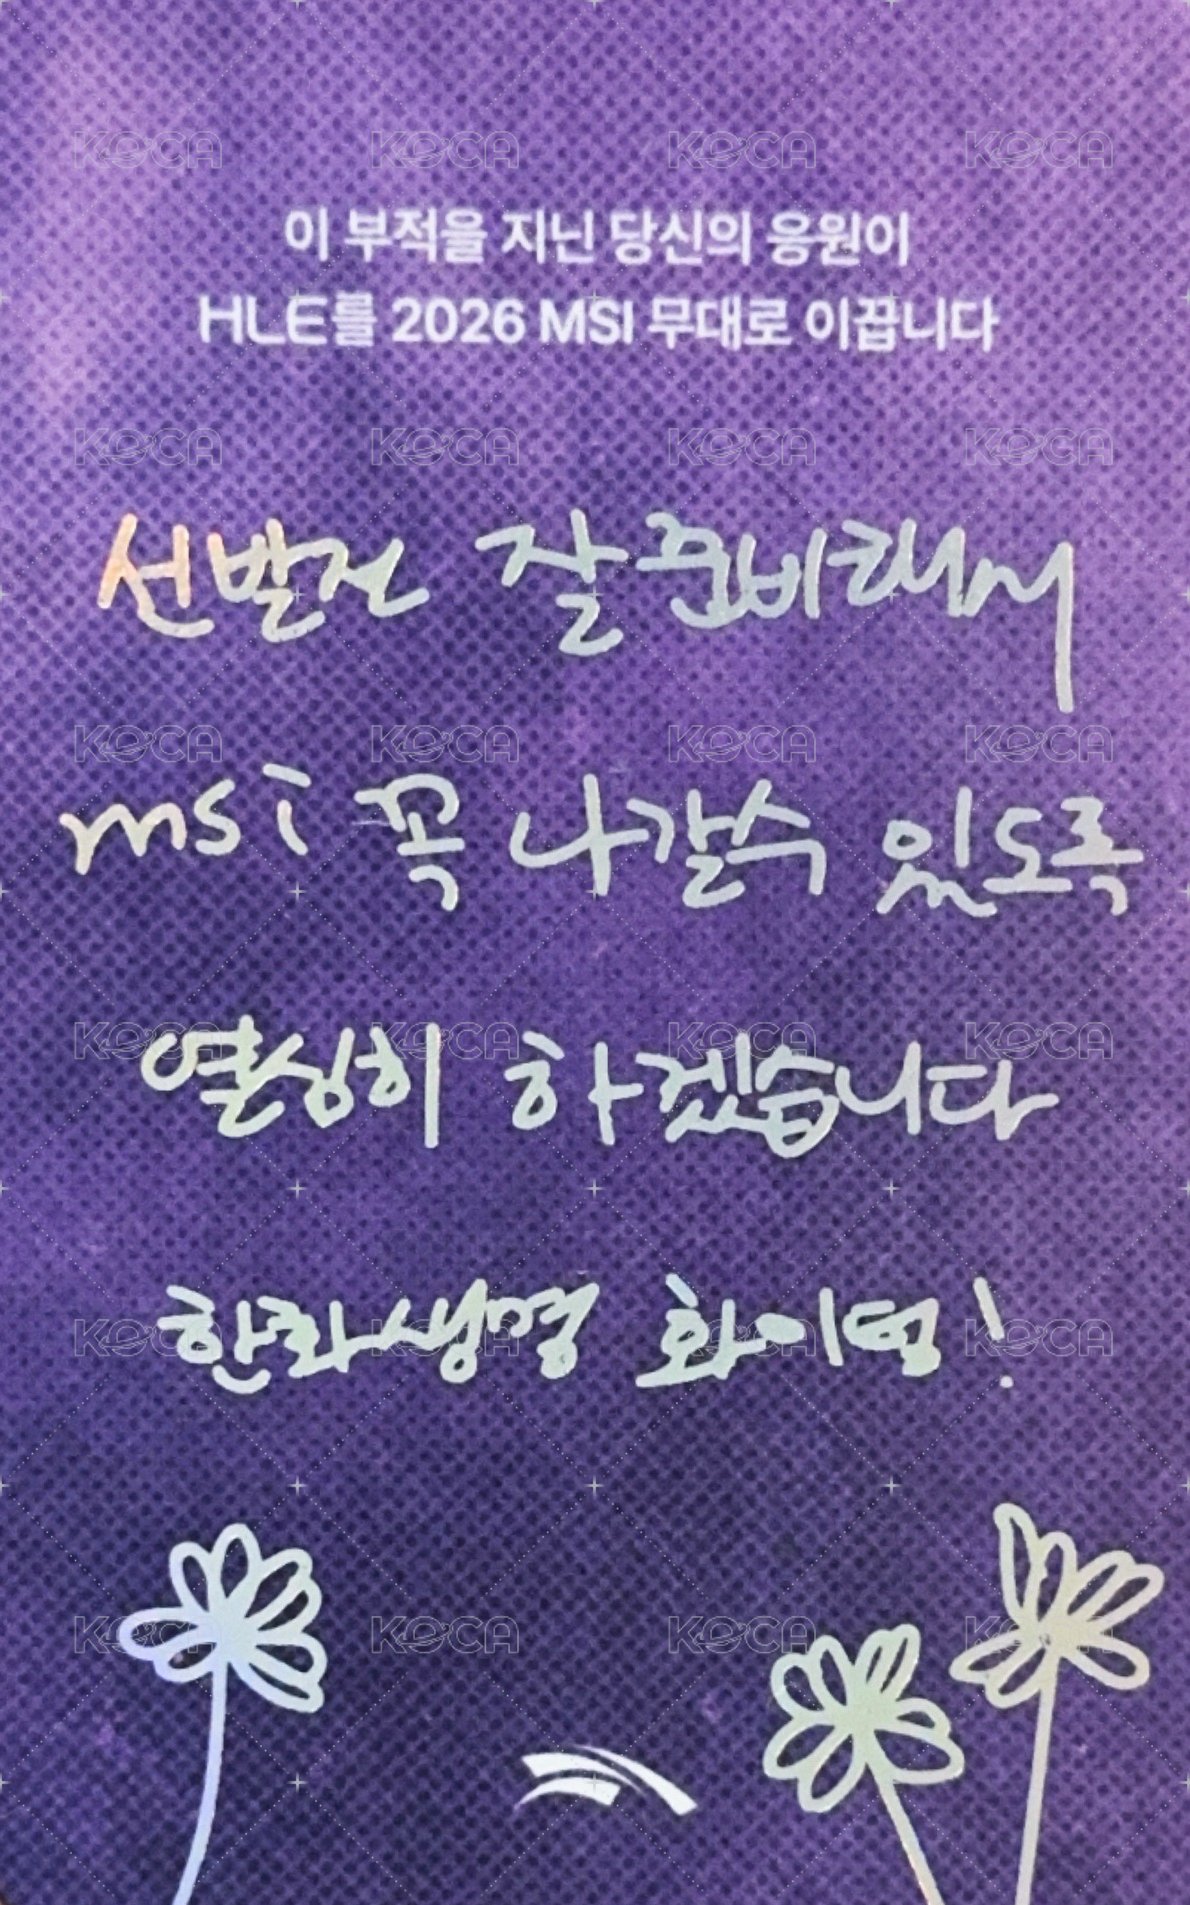 이 부적을 지닌 당신의 응원이
HLE를 2026 MSI 무대로 이끕니다
선발전 잘 준비해서
msi 꼭 나갈수 있도록
열심히 하겠습니다
한화생명 화이팅!
KOCA KOCA KOCA KOCA
KOCA KOCA KOCA KOCA
KOCA KOCA KOCA KOCA
KOCA KOCA KOCA KOCA
KOCA KOCA KOCA KOCA
KOCA KOCA KOCA KOCA